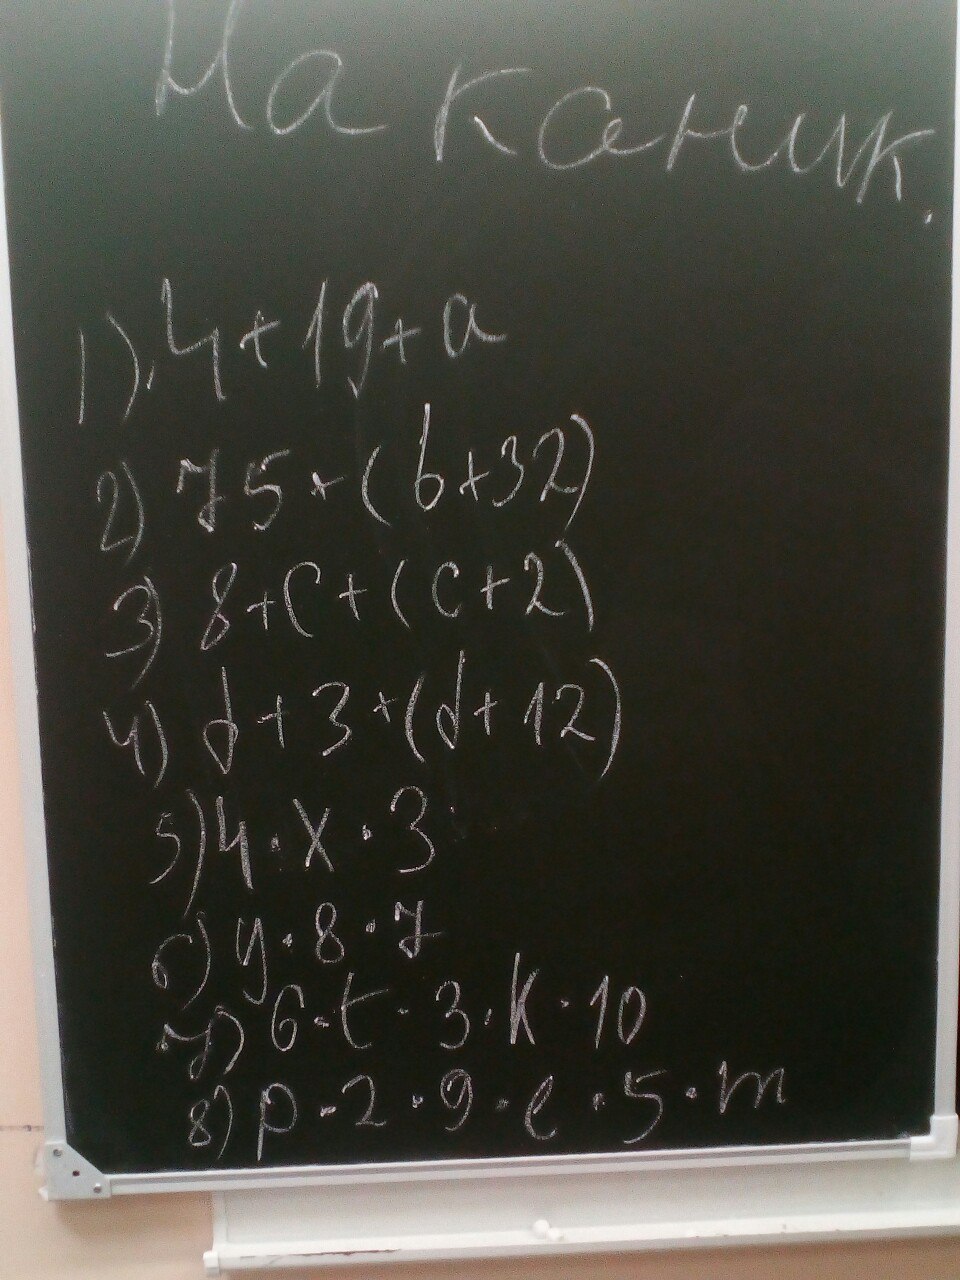 На каник.
1) 4+19+a
2) 75+(b+32)
3) 8+c+(c+2)
4) d+3+(d+12)
5) 4·x·3
6) y·8·7
7) 6·t·3·k·10
8) p·2·9·e·5·m